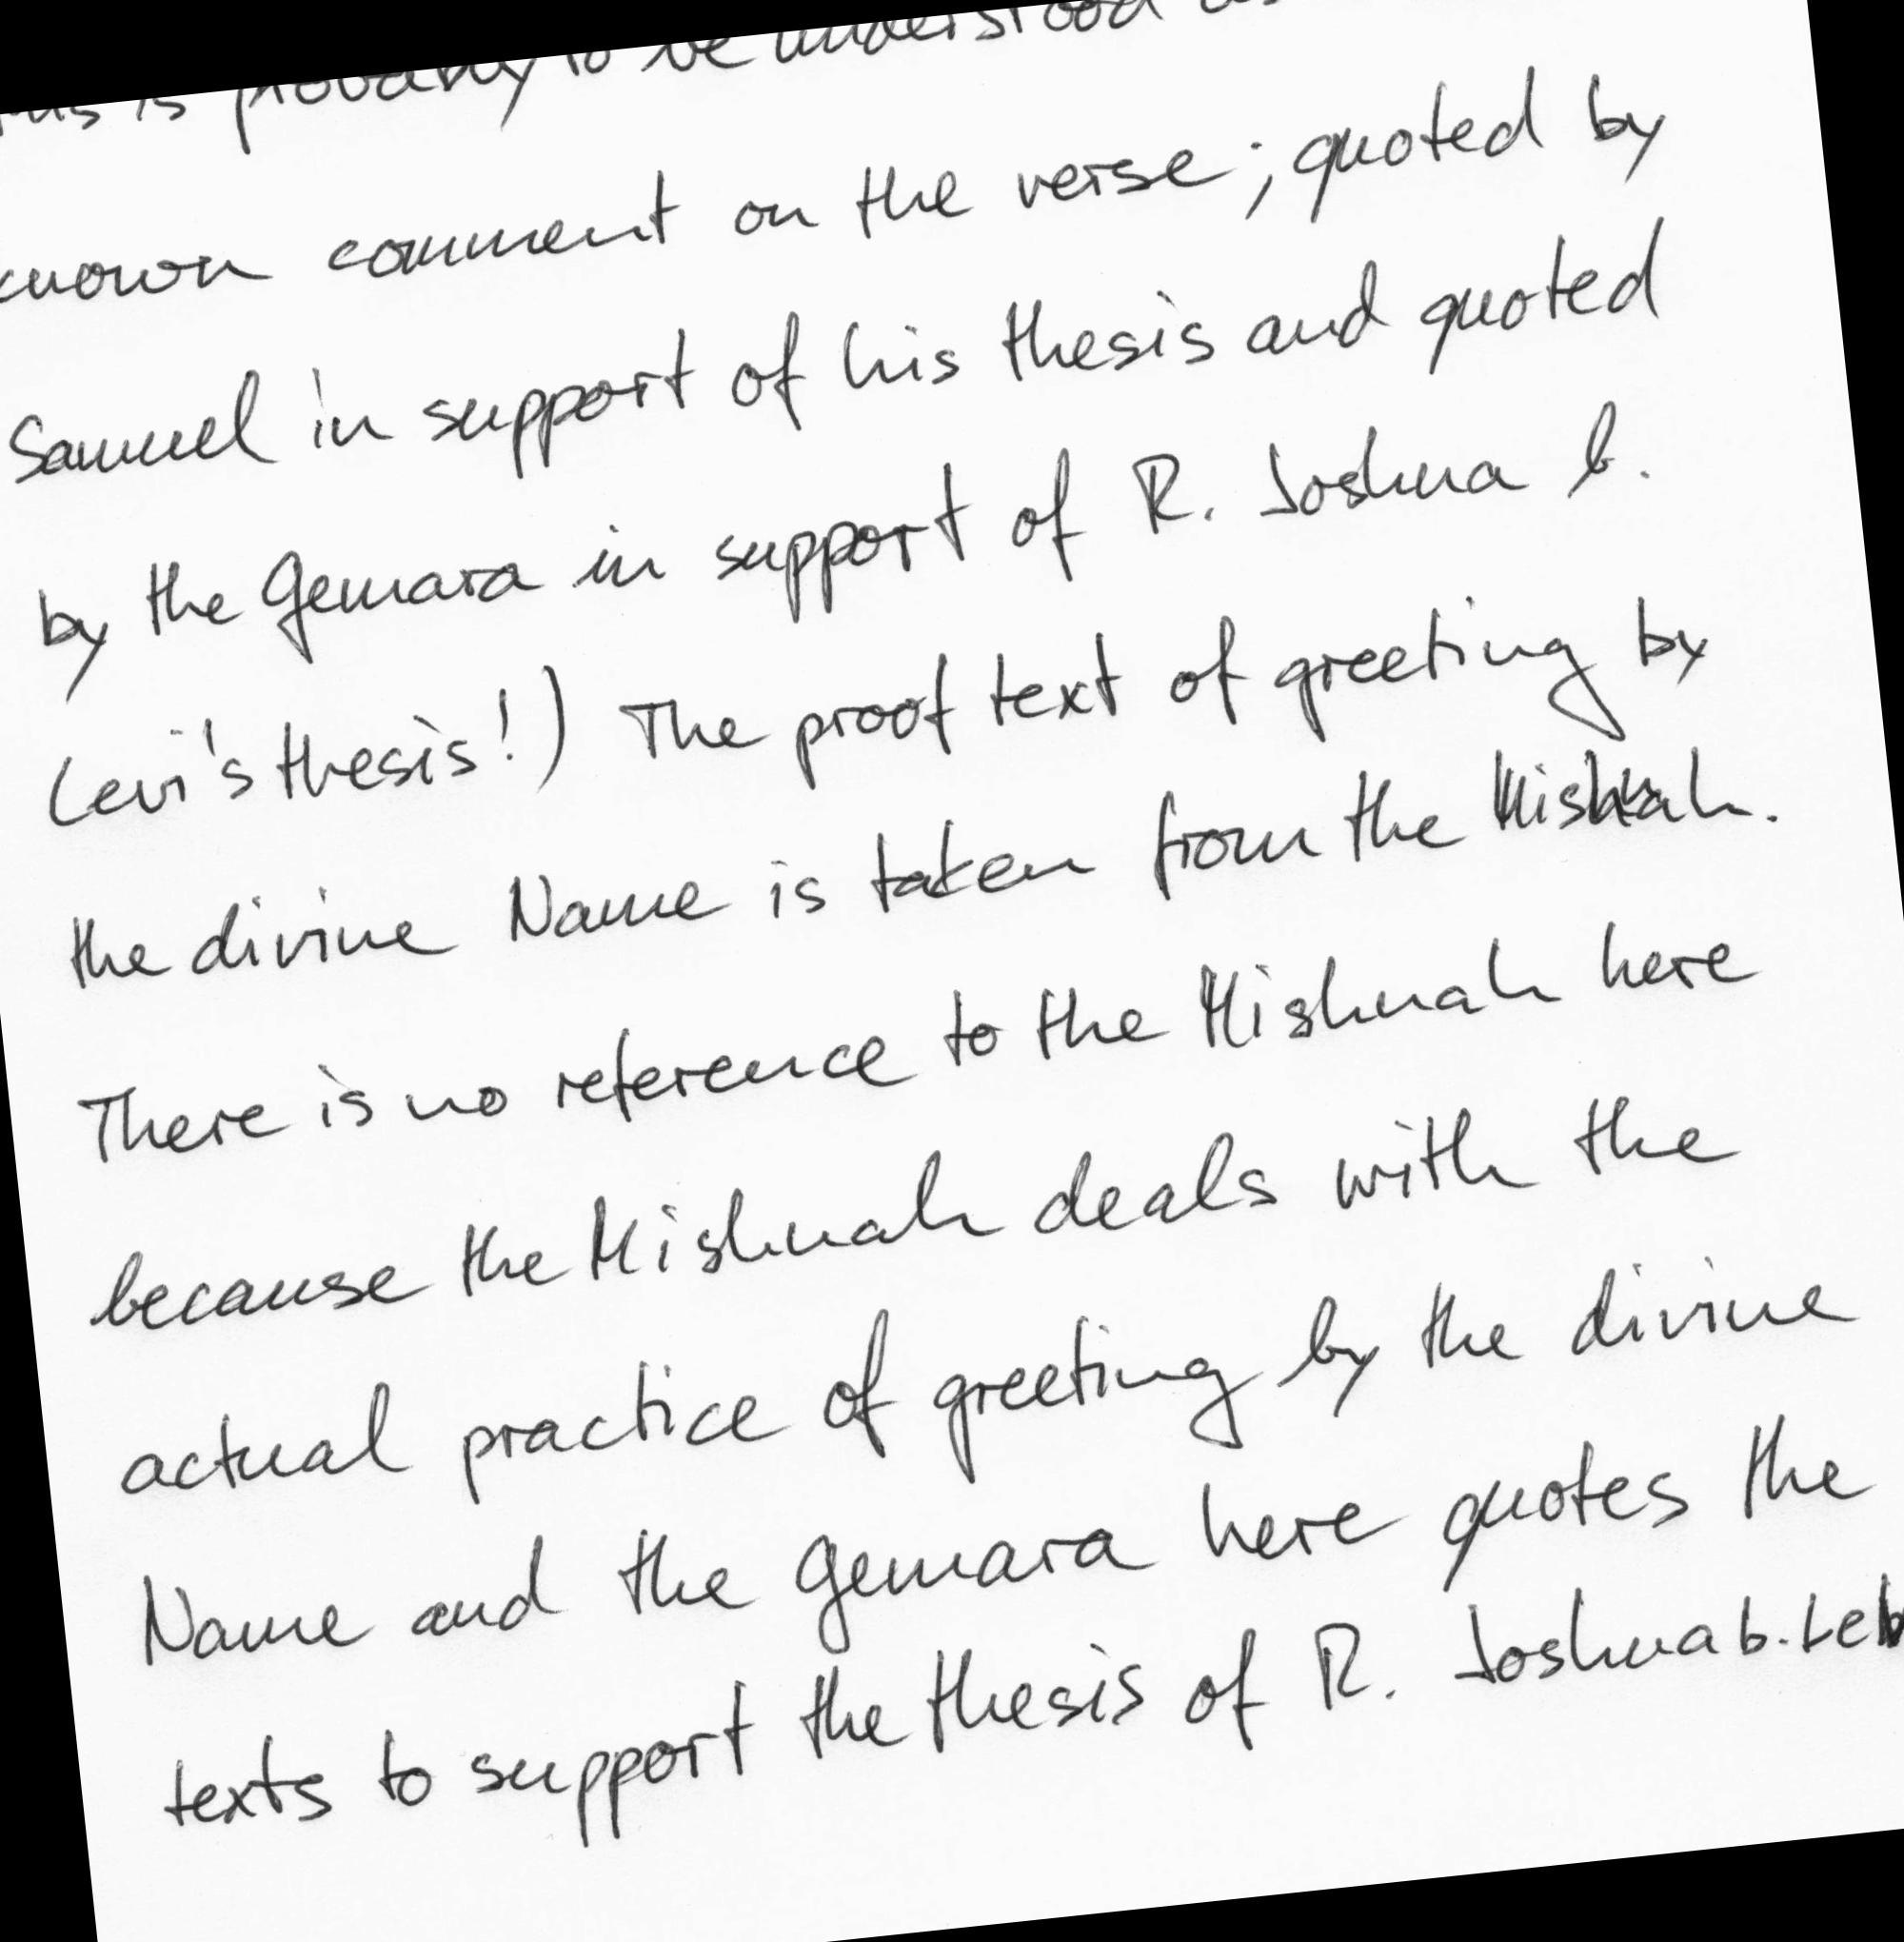 is probably to be understood
known comment on the verse; quoted by
Samuel in support of his thesis and quoted
by the Gemara in support of R. Joshua b.
Levi's thesis!) The proof text of greeting by
the divine Name is taken from the Mishnah.
There is no reference to the Mishnah here
because the Mishnah deals with the
actual practice of greeting by the divine
Name and the Gemara here quotes the
texts to support the thesis of R. Joshua b.